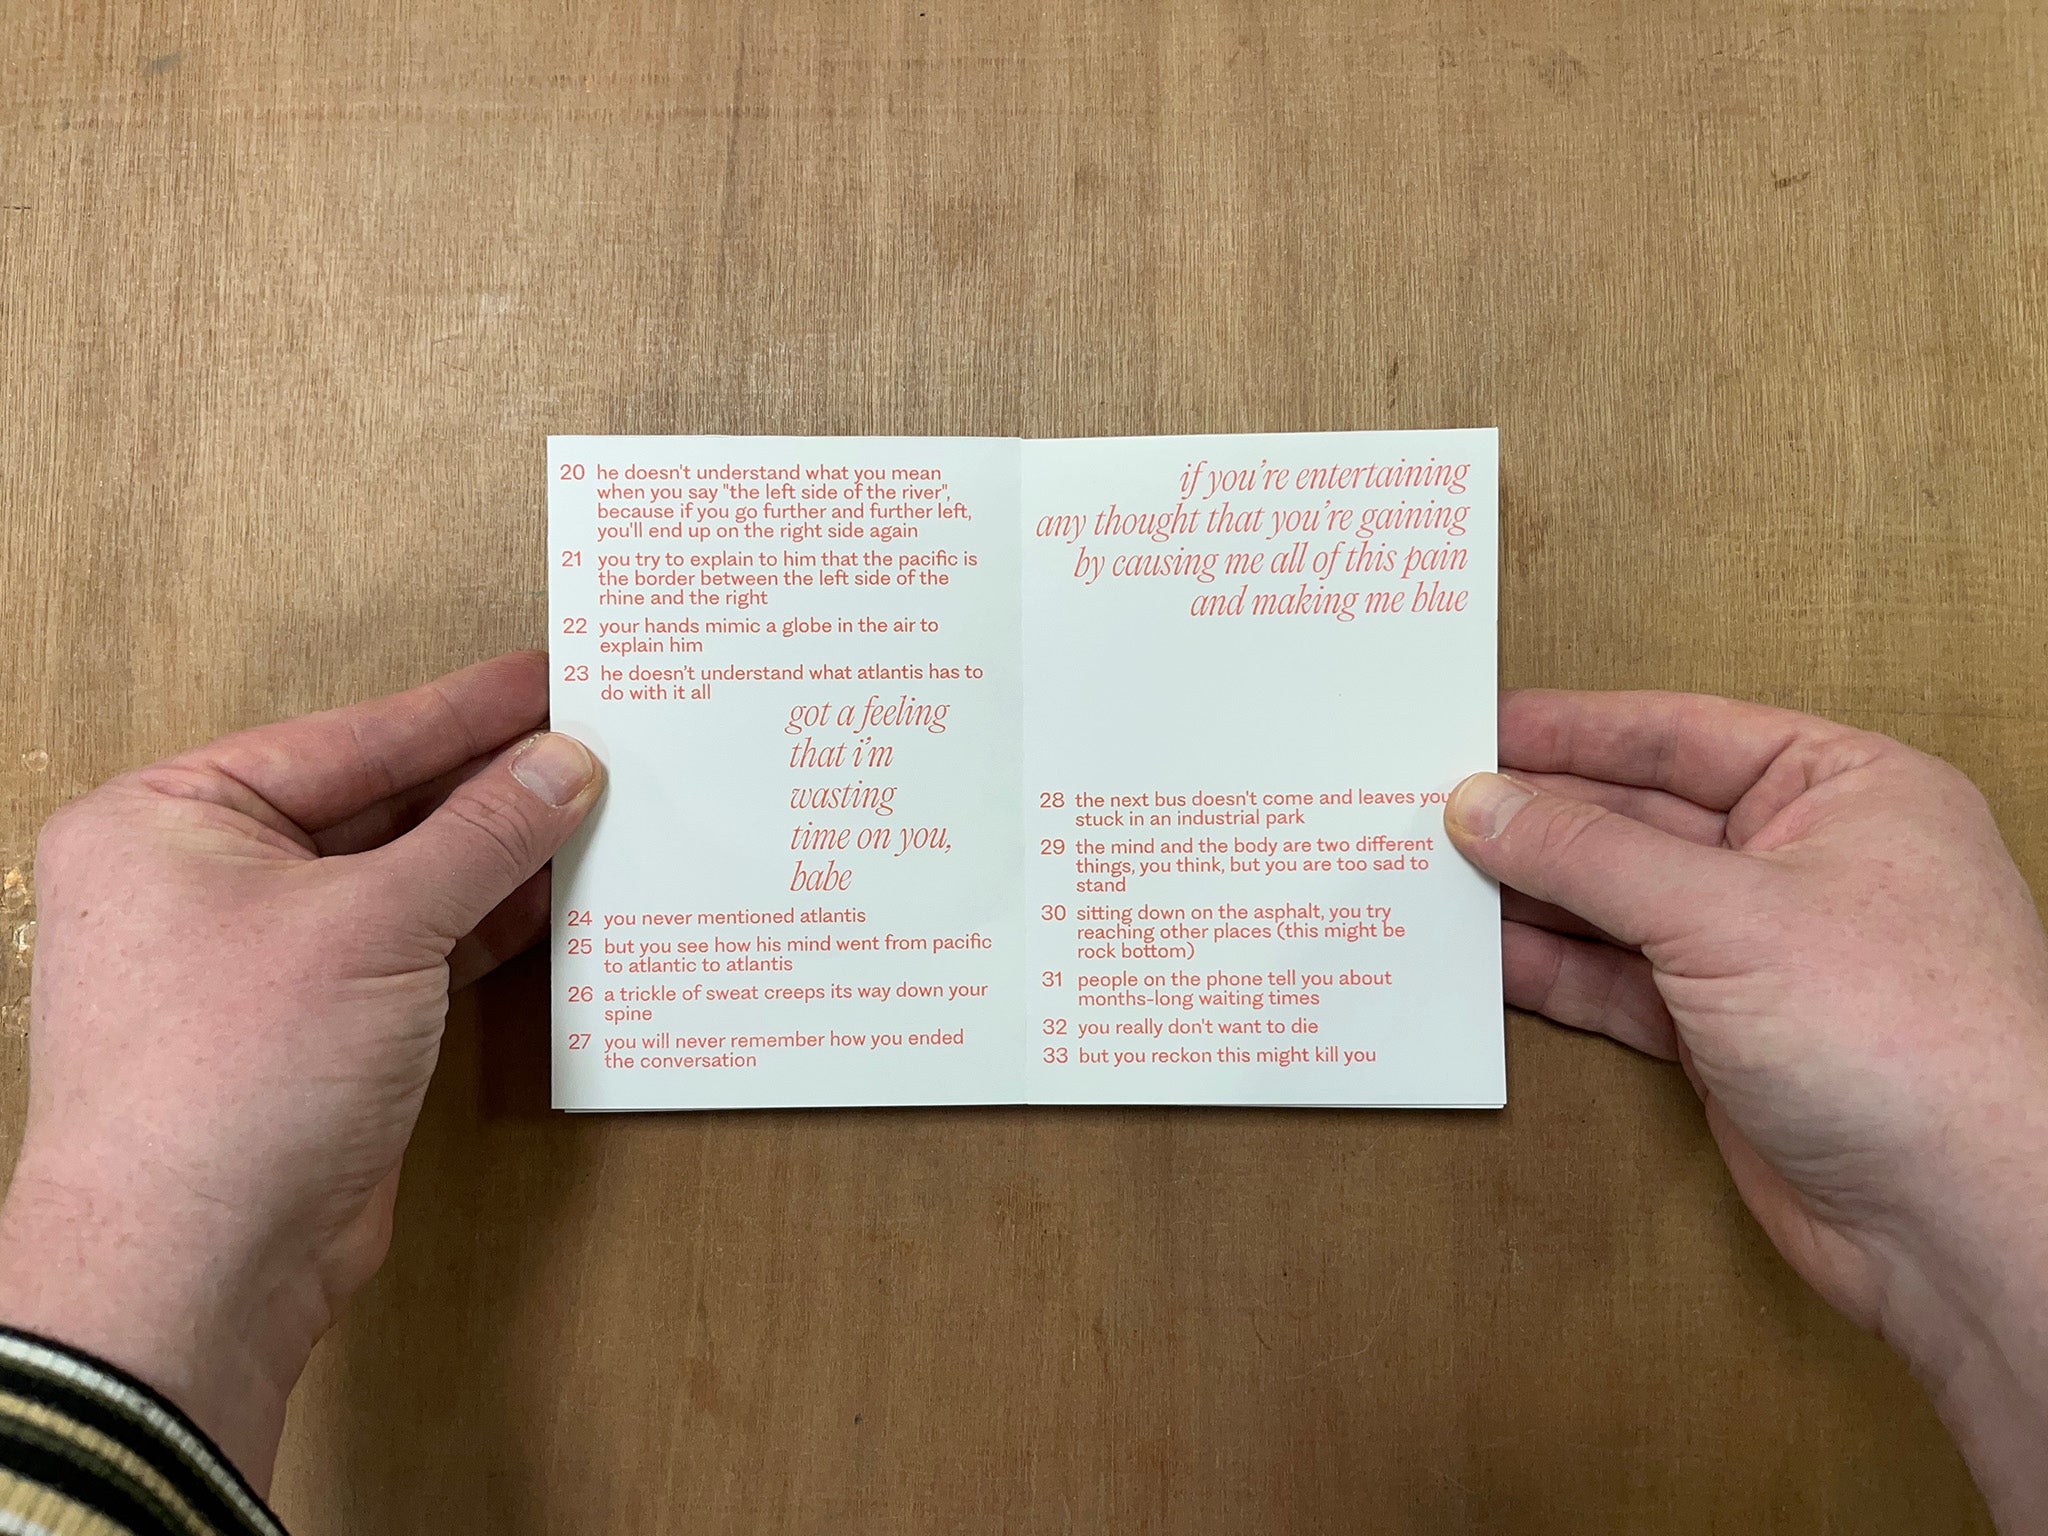 20 he doesn't understand what you mean
when you say "the left side of the river",
because if you go further and further left,
you'll end up on the right side again
21 you try to explain to him that the pacific is
the border between the left side of the
rhine and the right
22 your hands mimic a globe in the air to
explain him
23 he doesn’t understand what atlantis has to
do with it all
got a feeling
that i’m
wasting
time on you,
babe
24 you never mentioned atlantis
25 but you see how his mind went from pacific
to atlantic to atlantis
26 a trickle of sweat creeps its way down your
spine
27 you will never remember how you ended
the conversation
if you’re entertaining
any thought that you’re gaining
by causing me all of this pain
and making me blue
28 the next bus doesn't come and leaves you
stuck in an industrial park
29 the mind and the body are two different
things, you think, but you are too sad to
stand
30 sitting down on the asphalt, you try
reaching other places (this might be
rock bottom)
31 people on the phone tell you about
months-long waiting times
32 you really don't want to die
33 but you reckon this might kill you